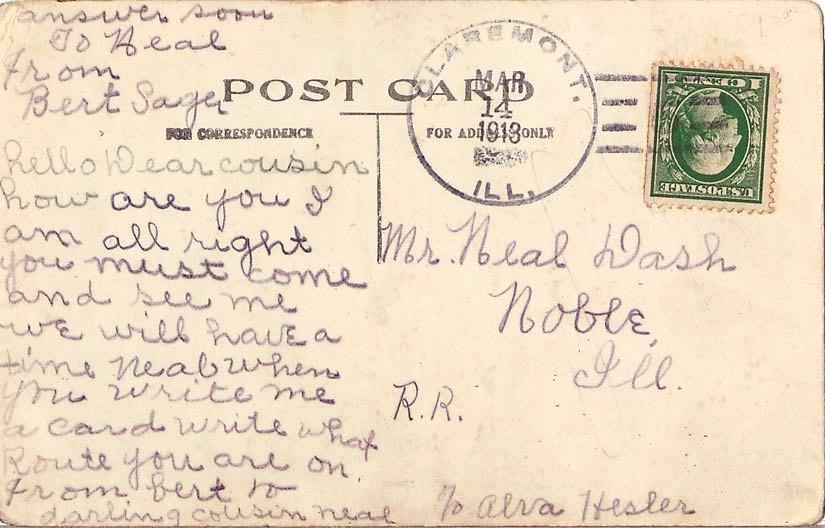 answer soon
To Neal
From
Bert Sager
POST CARD
FOR CORRESPONDENCE
FOR ADDRESS ONLY
hello Dear cousin
how are you I
am all right
you must come
and see me
we will have a
time Neal When
you write me
a card write what
Route you are on
From bert to
darling cousin neal
CLAREMONT.
MAR
14
1913
ILL.
U.S. POSTAGE
1 CENT 1
Mr. Neal Dash
Noble,
Ill.
R.R.
℅ Alva Hesler